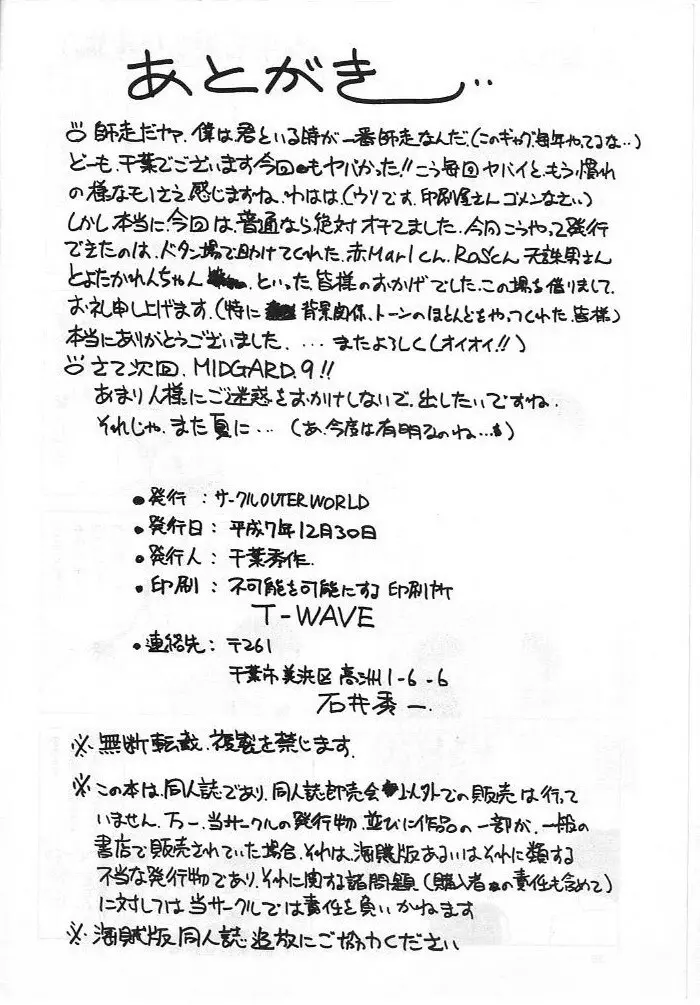 あとがき..
師走だヤァ.僕は君といる時が一番師走なんだ.(このギャグ毎年やってるな..)
どーも.千葉でございます今回もヤバかった!!こう毎回ヤバイと.もう慣れ
の様なモノさえ感じますね.わはは.(ウソです.印刷屋さんゴメンなさい)
しかし本当に今回は.普通なら絶対オチてました.今回こうやって発行
できたのは.ドタン場で助けてくれた.赤Marlくん.ROSくん 天誅男さん
とよたかれんちゃん といった皆様のおかげでした.この場を借りまして.
お礼申し上げます.(特に 背景関係、トーンのほとんどをやってくれた.皆様)
本当にありがとうございました....またよろしく(オイオイ!!)
さて次回.MIDGARD.9!!
あまり人様にご迷惑をおかけしないで.出したいですね.
それじゃ.また夏に...(あ.今度は有明なのね...)
●発行:サークルOUTER WORLD
●発行日:平成7年12月30日
●発行人:千葉秀作.
●印刷:不可能を可能にする印刷所
T-WAVE
●連絡先:〒261
千葉市美浜区高洲1-6-6
石井秀一.
※無断転載.複製を禁じます.
※この本は.同人誌であり.同人誌即売会以外での販売は行って
いません.万一.当サークルの発行物.並びに作品の一部が.一般の
書店で販売されていた場合.それは.海賊版あるいはそれに類する
不当な発行物であり.それに関する諸問題(購入者の責任も含めて)
に対しては当サークルでは責任を負いかねます
※海賊版同人誌追放にご協力ください